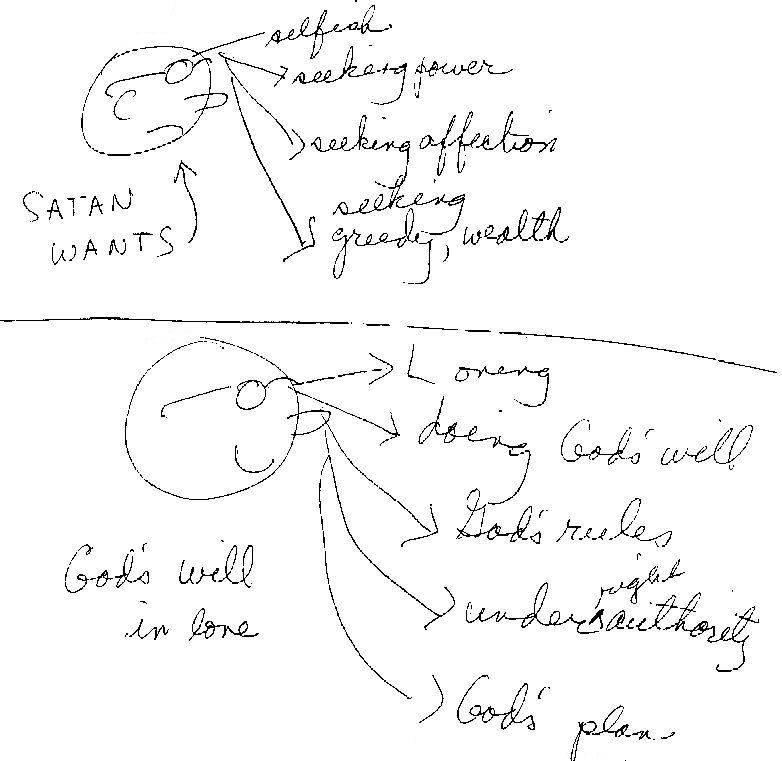 selfish
seeking power
seeking affection
SATAN
WANTS
seeking
greedy, wealth
Loving
doing God's will
God's rules
God's will
in love
right
under ^ authority
God's plan